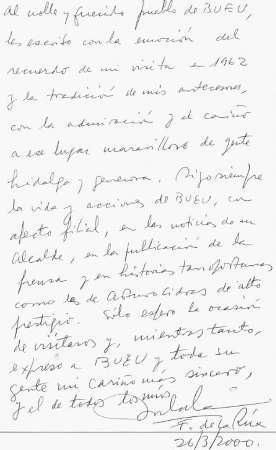 Al noble y querido pueblo de BUEU,
les escribo con la emoción del
recuerdo de mi visita en 1962
y la tradición de mis antecesores,
con la admiración y el cariño
a ese lugar maravilloso de gente
hidalga y generosa. Sigo siempre
la vida y acciones de BUEU, con
afecto filial, en las noticias de un
Alcalde, en la publicación de la
prensa y en historias
como las de de alto
prestigio. Sólo espero la ocasión
de visitaros y, mientras tanto,
expreso a BUEU y toda su
gente mi cariño más sincero,
y el de todos los míos
F. de la Rúa
26/3/2000.